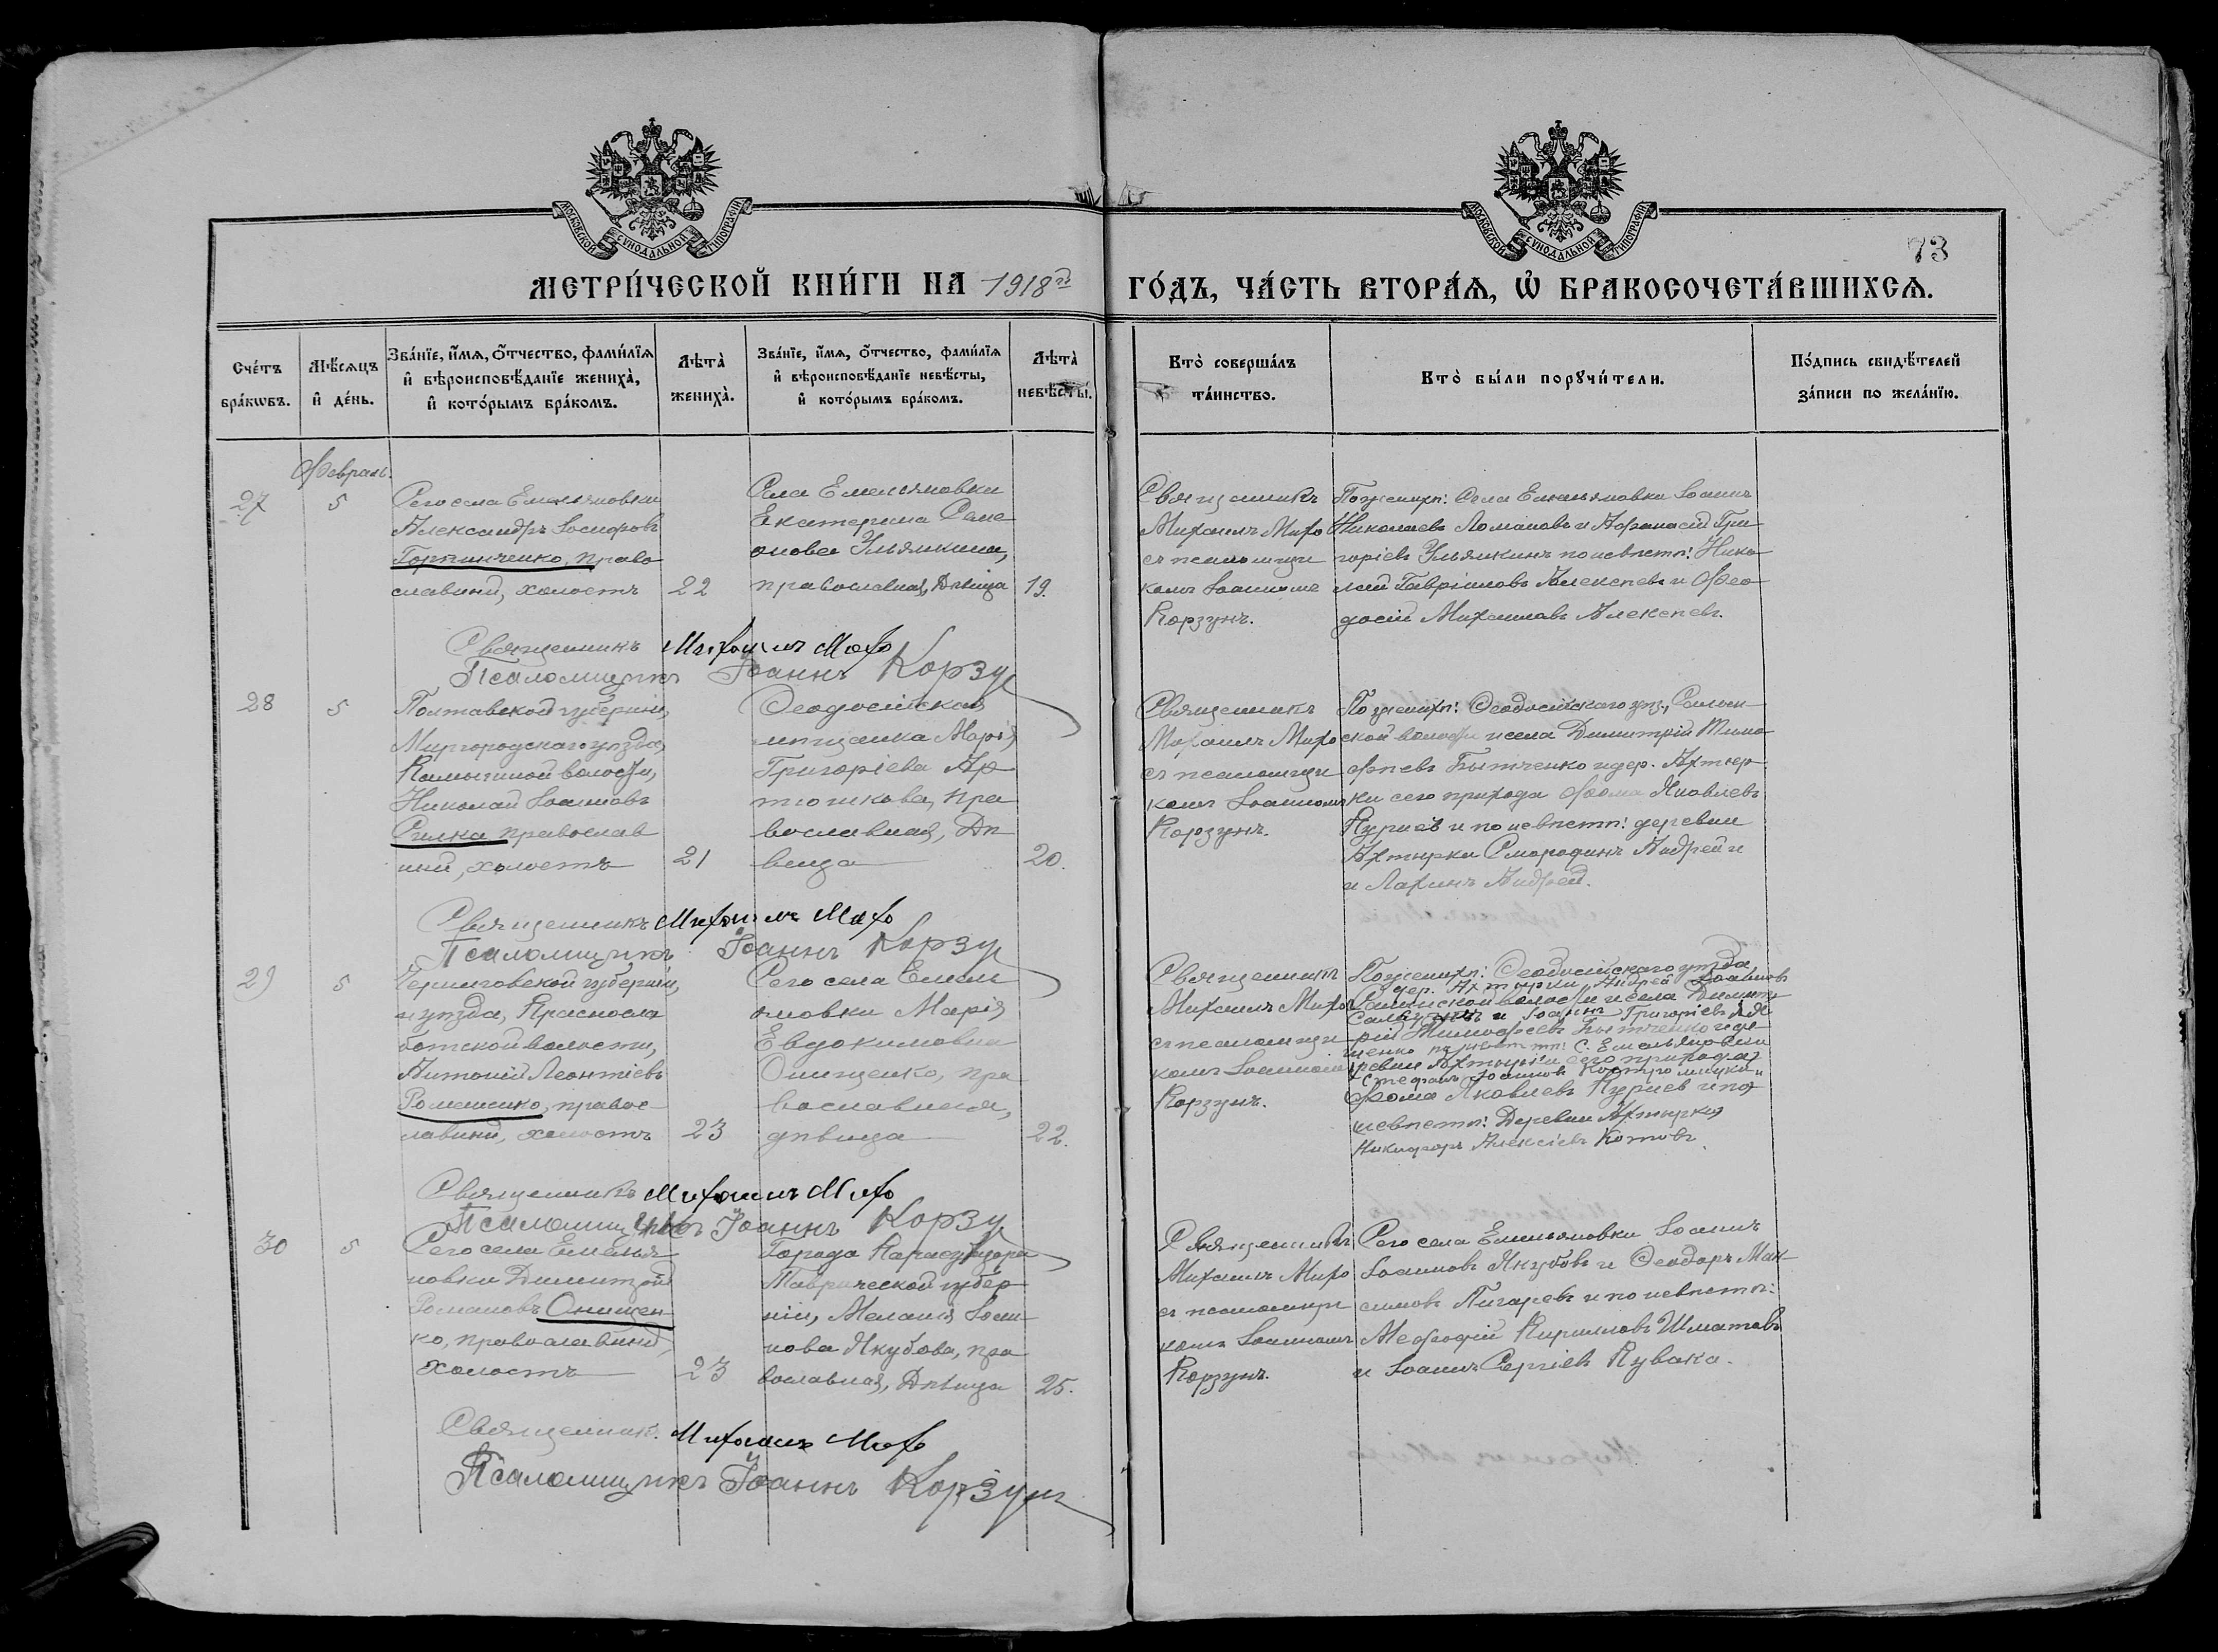 МОСКОВСКОЙ СѴНОДАЛЬНОЙ ТИПОГРАФІИ
МОСКОВСКОЙ СѴНОДАЛЬНОЙ ТИПОГРАФІИ
73
МЕТРИ́ЧЕСКОЙ КНИ́ГИ НА 1918й
ГО́ДЪ, ЧА́СТЬ ВТОРА́Ѧ, Ѡ҆ БРАКОСОЧЕТА́ВШИХСѦ.
Сче́тъ
бра́кѡвъ.
Мѣ́сѧцъ
и҆ де́нь.
Зва́нїе, и҆́мѧ, ѻ҆́тчество, фами́лїѧ
и҆ вѣроисповѣ́данїе жениха̀,
и҆ кото́рымъ бра́комъ.
Лѣта̀
жениха̀.
Зва́нїе, и҆́мѧ, ѻ҆́тчество, фами́лїѧ
и҆ вѣроисповѣ́данїе невѣ́сты,
и҆ кото́рымъ бра́комъ.
Лѣта̀
невѣ́сты.
Кто̀ соверша́лъ
та́инство.
Кто̀ бы́ли порꙋчи́тели.
По́дпись свидѣ́телей
за́писи по жела́нїю.
Февраль.
27
5
Сего села Емельяновки
Александръ Іосифовъ
Горпинченко, право
славный, холостъ
22
Села Емельяновки
Екатерина Семе
онова Ульянкина,
православная, Дѣвица
19.
Священникъ
Михаилъ Михо
съ псаломщи
комъ Іоанномъ
Корзунъ.
По женихѣ: Села Емельяновки Іоаннъ
Николаевъ Ломановъ и Афанасій Гри
горіевъ Ульянкинъ по невѣстѣ: Нико
лай Гавріиловъ Алексѣевъ и Фео
досій Михаиловъ Алексѣевъ.
Священникъ Михаилъ Михо
Псаломщикъ Іоаннъ Корзу
28
5
Полтавской губерніи,
Миргородскаго уѣзда,
волости,
Николай Іоанновъ
Силка православ
ный, холостъ
21
Феодосійская
мѣщанка Марія
Григоріева Ар
тюшкова, пра
вославная, Дѣ
вица
20.
Священникъ
Михаилъ Михо
съ псаломщи
комъ Іоанномъ
Корзунъ.
По женихѣ: Феодосійскаго уѣз.,
ской волости и села Димитрій Тимо
фѣевъ Бытченко и дер. Ахтыр
ки сего прихода Фома Яковлевъ
Куриевъ и по невѣстѣ: деревни
Ахтырки Смородинъ Андрей и
и Лахинъ Андрей.
Священникъ Михаилъ Михо
Псаломщикъ Іоаннъ Корзу
29
5
Черниговской губерніи,
и уѣзда, Красносла
ботской волости,
Антоній Леонтіевъ
Ромашенко, правос
лавный, холостъ
23
Сего села Емель
яновки Марія
Евдокимовна
Онищенко, пра
вославная,
дѣвица
22.
Священникъ
Михаилъ Михо
съ псаломщи
комъ Іоанномъ
Корзунъ.
По женихѣ: Феодосійскаго уѣзда
дер. Ахтырки Андрей Іоанновъ
волости и села Димит
и Іоаннъ Григоріевъ
рій Тимофеевъ Бытченко и де
по невѣстѣ: С. Емельяновки
ревни Ахтырки сего прихода
Стефанъ Іоанновъ
Фома Яковлевъ Куриев и по
невѣстѣ: Деревни Ахтырки
Никифоръ Алексіевъ Котовъ.
Священникъ Михаилъ Михо
Псаломщикъ Іоаннъ Корзу
30
5
Сего села Емелья
новки Димитрій
Романовъ Онищен
ко, православный,
холостъ
23
Города Карасубазара
Таврической губер
ніи, Меланія Іоан
нова Якубова, пра
вославная, Дѣвица
25.
Священникъ
Михаилъ Михо
съ псаломщи
комъ Іоанномъ
Корзунъ.
Сего села Емельяновки Іоаннъ
Іоанновъ Якубовъ и Феодоръ Мак
симовъ Пигаревъ и по невѣстѣ:
Мефодій Кирилловъ Шматовъ
и Іоаннъ Сергіевъ Кувака.
Священник. Михаилъ Михо
Псаломщикъ Іоаннъ Корзунъ